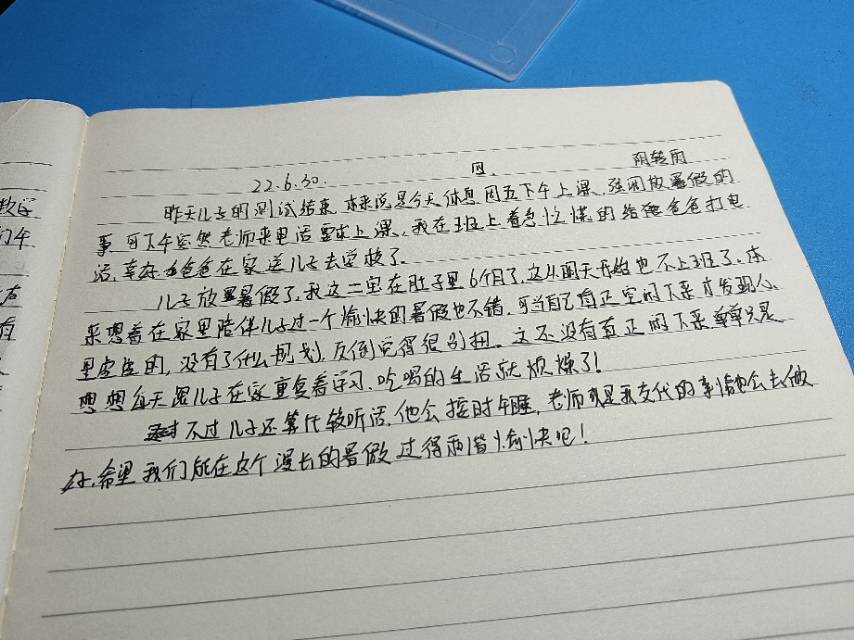 22.6.30. 四. 阴转雨
昨天儿子的测试结束,本来说是今天休息周五下午上课,强调放暑假的
事,可下午突然老师来电话要求上课,我在班上着急忙慌的给爸爸打电
话,幸好爸爸在家送儿子去学校了。
儿子放暑假了,我这二宝在肚子里6个月了,这从明天开始也不上班了。本
来想着在家里陪伴儿子过一个愉快的暑假也不错,可当自己真正空闲下来才发现心
里空空的,没有了什么规划,反倒觉得很别扭。这还没有真正闲下来单单只是
想想每天跟儿子在家重复着学习,吃喝的生活就烦燥了!
不过儿子还算比较听话,他会按时午睡,老师或是我交代的事情他会去做
好,希望我们能在这个漫长的暑假过得和谐愉快吧!